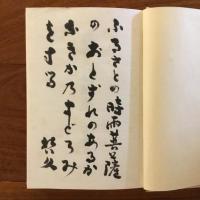 ふるさとの時雨菩薩
のおとずれのあるか
なきかのまどろみ
をする